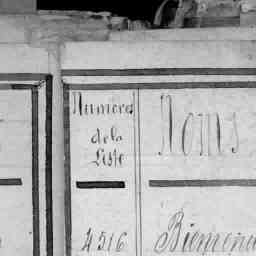 Numéros
de la
Liste
Noms
4516